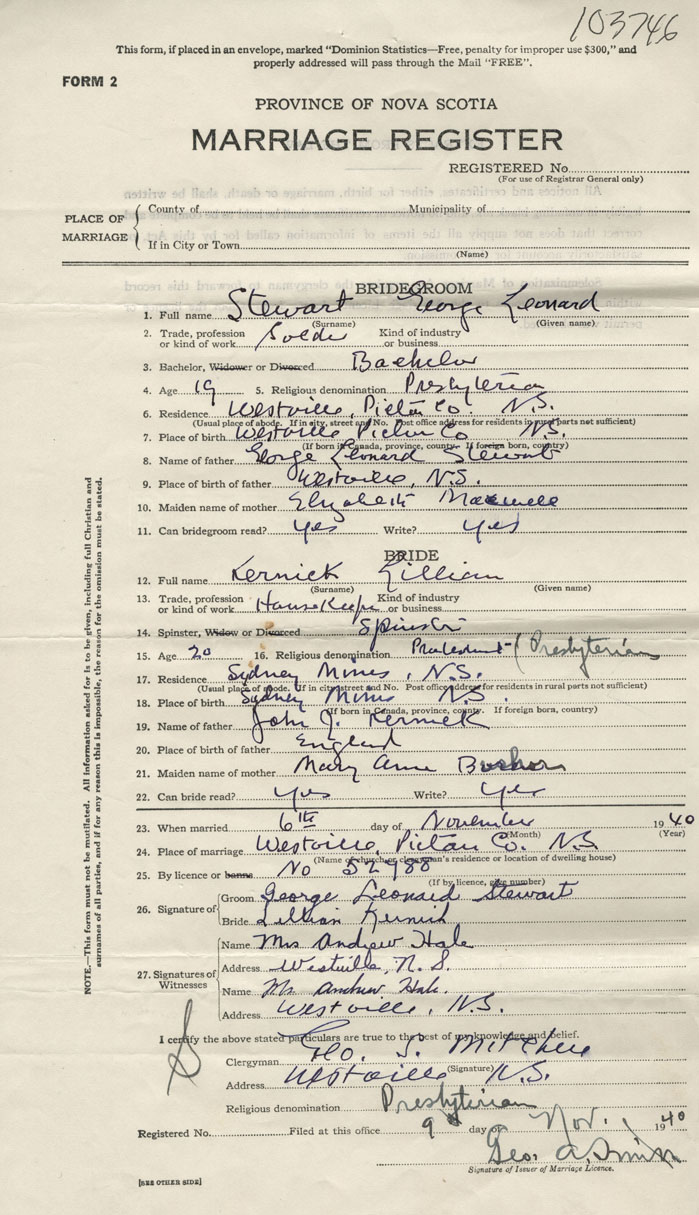 103746
This form, if placed in an envelope, marked "Dominion Statistics—Free, penalty for improper use $300," and
properly addressed will pass through the Mail "FREE".
FORM 2
PROVINCE OF NOVA SCOTIA
MARRIAGE REGISTER
REGISTERED No.
(For use of Registrar General only)
PLACE OF MARRIAGE
County of Municipality of
If in City or Town
(Name)
BRIDEGROOM
1. Full name Stewart George Leonard
(Surname) (Given name)
2. Trade, profession or kind of work Kind of industry or business
3. Bachelor, Widower or Divorced Bachelor
4. Age 19 5. Religious denomination Presbyterian
6. Residence Westville, Pictou Co. N.S.
(Usual place of abode. If in city, street and No. Post office address for residents in rural parts not sufficient)
7. Place of birth Westville Pictou Co N.S.
(If born in Canada, province, county. If foreign born, country)
8. Name of father George Leonard Stewart
9. Place of birth of father Westville, N.S.
10. Maiden name of mother Elizabeth Maxwell
11. Can bridegroom read? yes Write? yes
BRIDE
12. Full name Kernick Lillian
(Surname) (Given name)
13. Trade, profession or kind of work HouseKeeper Kind of industry or business
14. Spinster, Widow or Divorced Spinster
15. Age 20 16. Religious denomination Protestant (Presbyterian
17. Residence Sydney Mines, N.S.
(Usual place of abode. If in city street and No. Post office address for residents in rural parts not sufficient)
18. Place of birth Sydney Mines N.S.
(If born in Canada, province, county. If foreign born, country)
19. Name of father John J. Kernick
20. Place of birth of father England
21. Maiden name of mother Mary Anne
22. Can bride read? yes Write? yes
23. When married 6th day of November 1940
(Month) (Year)
24. Place of marriage Westville, Pictou Co. N.S.
(Name of church or clergyman's residence or location of dwelling house)
25. By licence or banns No 52988
(If by licence, give number)
26. Signature of
Groom George Leonard Stewart
Bride Lillian Kernick
27. Signatures of Witnesses
Name Mrs Andrew Hale
Address Westville, N.S.
Name Mr. Andrew Hale
Address Westville, N.S.
I certify the above stated particulars are true to the best of my knowledge and belief.
Clergyman Geo. S. Mitchell
(Signature)
Address Westville N.S.
Religious denomination Presbyterian
Registered No. Filed at this office 9 day of Nov. 1940
Geo. A.
Signature of Issuer of Marriage Licence.
[SEE OTHER SIDE]
NOTE.—This form must not be mutilated. All information asked for is to be given, including full Christian and
surnames of all parties, and if for any reason this is impossible, the reason for the omission must be stated.